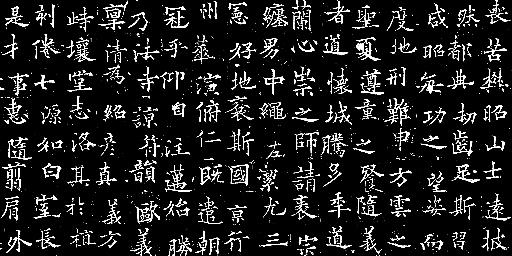 喪苦樊昭山士遠披
然都典初齒足斯習
咸昭每功之望姿而
度地刑難申方雲之
聖夏遵童之餐隨義
者道懷城騰多季道
蘭心崇之師請裘宗
纏男中繩左潔尤三
好地褒斯國京行
州華演俯仁既遣朝
冠乎仰自汪邁始勝
乃法寺諒符韻歐義
稟清為紹彥真義方
時壤堂志洛其於植
利倦七源和白室長
是才事惠隨翦肩外